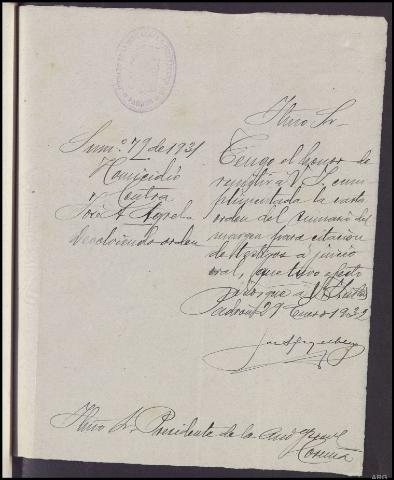 Sum.º 79 de 1931
Homicidio
Contra
José A. Agrelo
devolviendo orden
Iltmo Sr
Tengo el honor de
remitir a V. S. cum-
plimentada la carta
orden del sumario del
margen para citacion
de testigos a juicio
oral, que tuvo efecto
Padrón 29 Enero 1932
Iltmo Sr. Presidente de la Aud.
Coruña
ARG